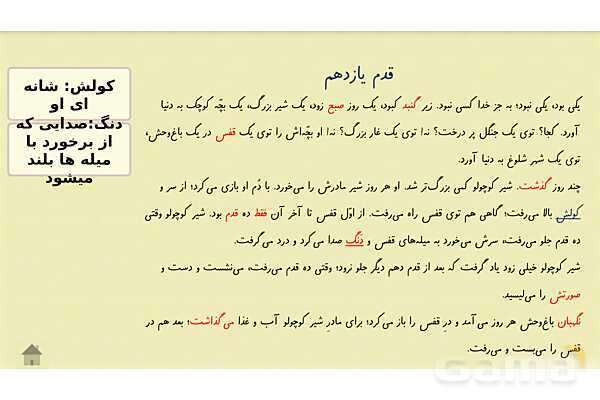 قدم یازدهم
یکی بود، یکی نبود؛ به جز خدا کسی نبود. زیر گنبد کبود، یک روز صبح زود، یک شیر بزرگ، یک بچّه کوچک به دنیا
آورد. کجا؟ توی یک جنگل پر درخت؟ نه! توی یک غار بزرگ؟ نه! او بچّه‌اش را توی یک قفس در یک باغ‌وحش،
توی یک شهر شلوغ به دنیا آورد.
چند روز گذشت. شیر کوچولو کمی بزرگ‌تر شد. او هر روز شیر مادرش را می‌خورد. با دُم او بازی می‌کرد؛ از سر و
کولش بالا می‌رفت؛ گاهی هم توی قفس راه می‌رفت. از اوّل قفس تا آخر آن فقط ده قدم بود. شیر کوچولو وقتی
ده قدم جلو می‌رفت، سرش می‌خورد به میله‌های قفس و دَنگ صدا می‌کرد و درد می‌گرفت.
شیر کوچولو خیلی زود یاد گرفت که بعد از قدم دهم دیگر جلو نرود؛ وقتی ده قدم می‌رفت، می‌نشست و دست و
صورتش را می‌لیسید.
نگهبان باغ‌وحش هر روز می‌آمد و درِ قفس را باز می‌کرد؛ برای مادرِ شیر کوچولو آب و غذا می‌گذاشت؛ بعد هم در
قفس را می‌بست و می‌رفت.
کولش: شانه
ای او
دنگ:صدایی که
از برخورد با
میله ها بلند
میشود
Gama